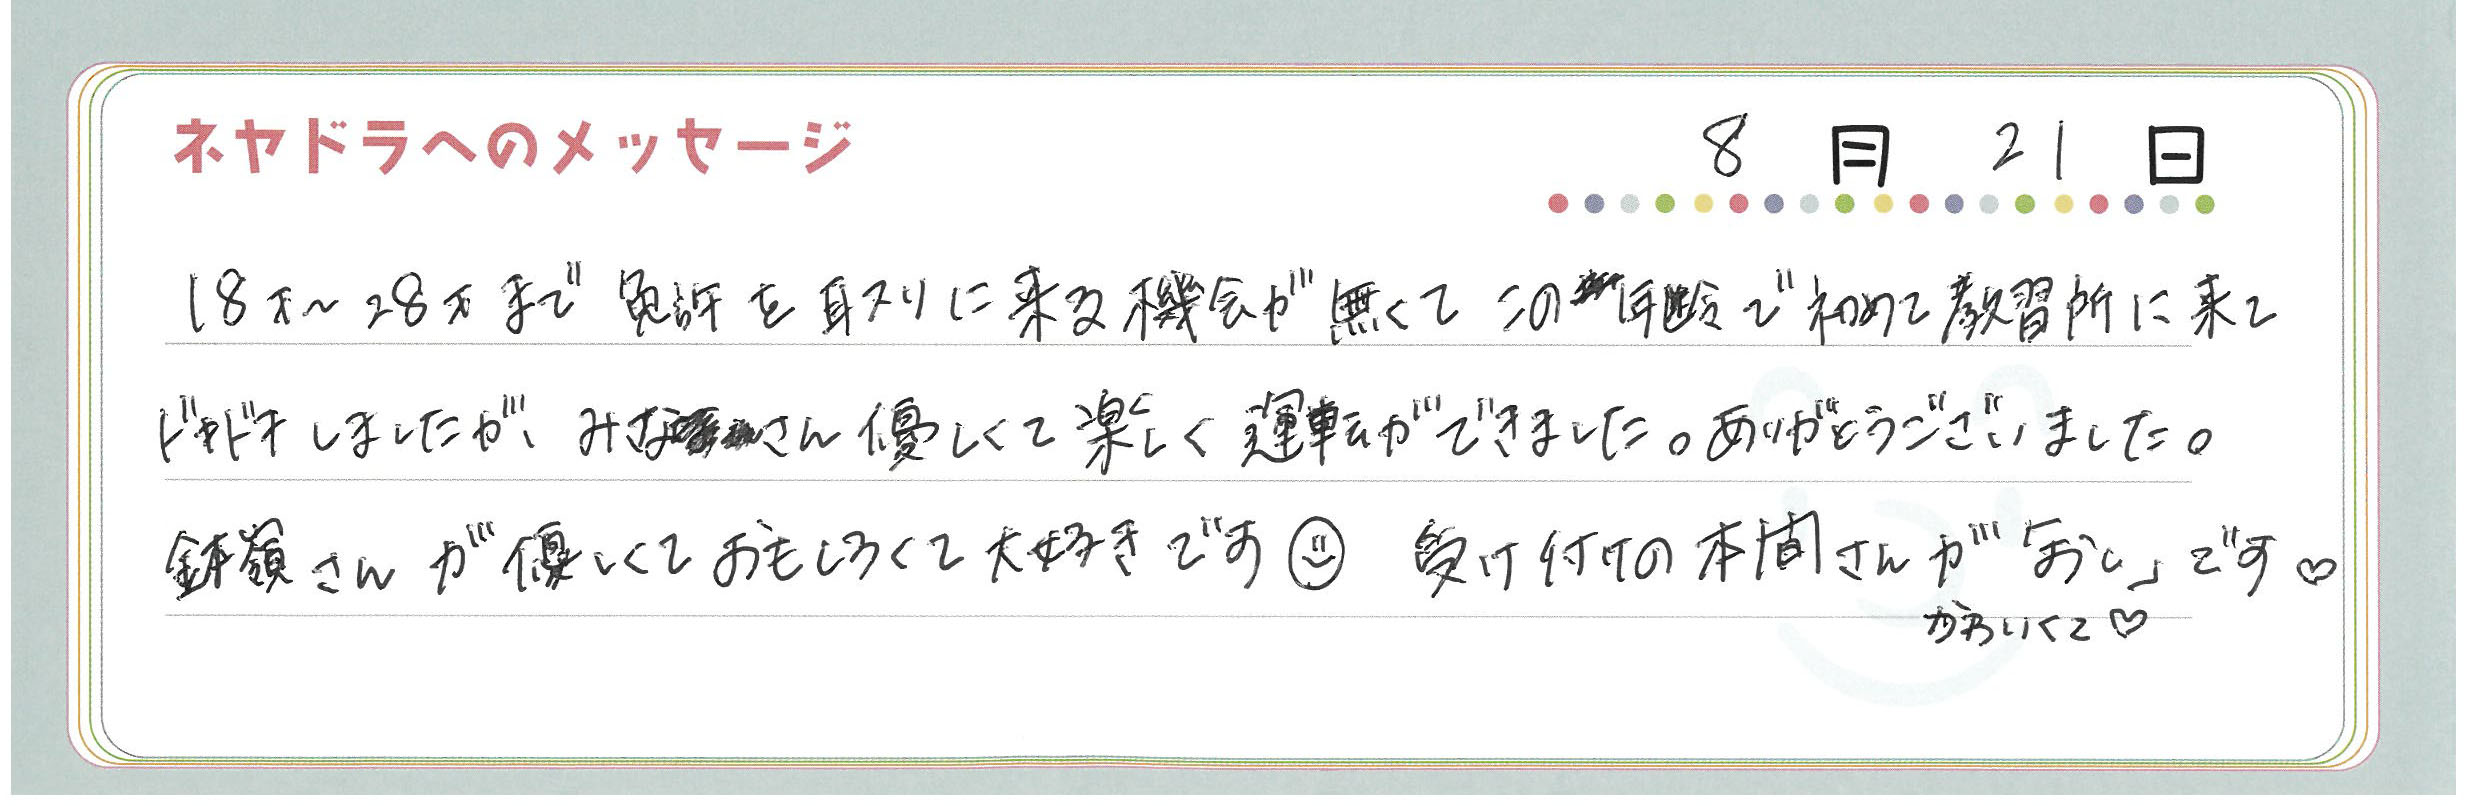 ネヤドラへのメッセージ
8月21日
18才～28才まで免許を取りに来る機会が無くてこの年齢で初めて教習所に来て
ドキドキしましたが、みなさん優しくて楽しく運転ができました。ありがとうございました。
鉢嶺さんが優しくておもしろくて大好きです☺ 受け付けの本間さんが「おし」です♡
かわいくて♡